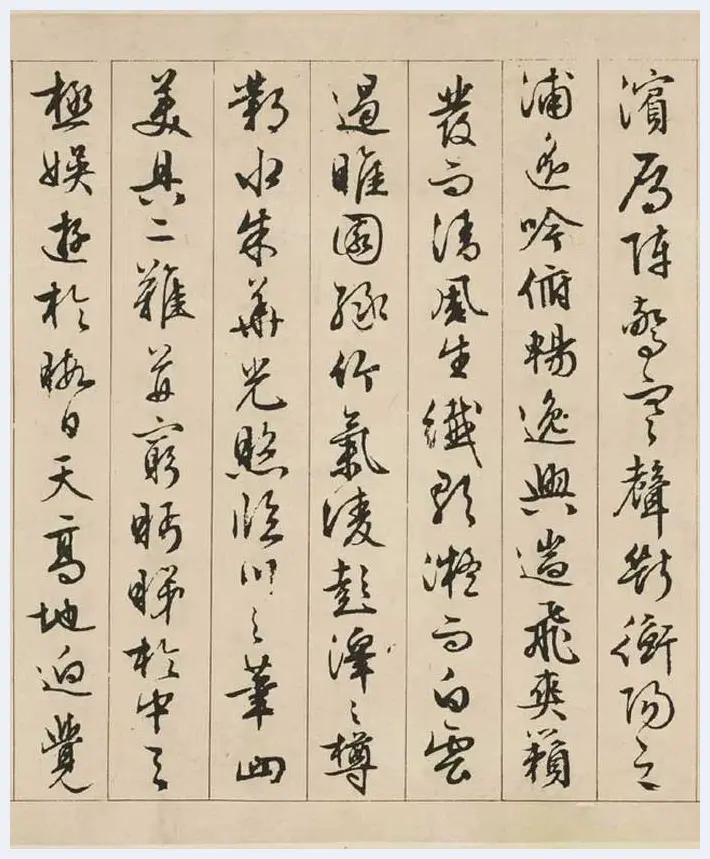 濱鴈陣驚寒聲斷衡陽之
浦遙吟俯暢逸興遄飛爽籟
發而清風生纖歌凝而白雲
遏睢園綠竹氣凌彭澤之樽
鄴水朱華光照臨川之筆四
美具二難并窮眄睇於中天
極娛遊於暇日天高地迥覺